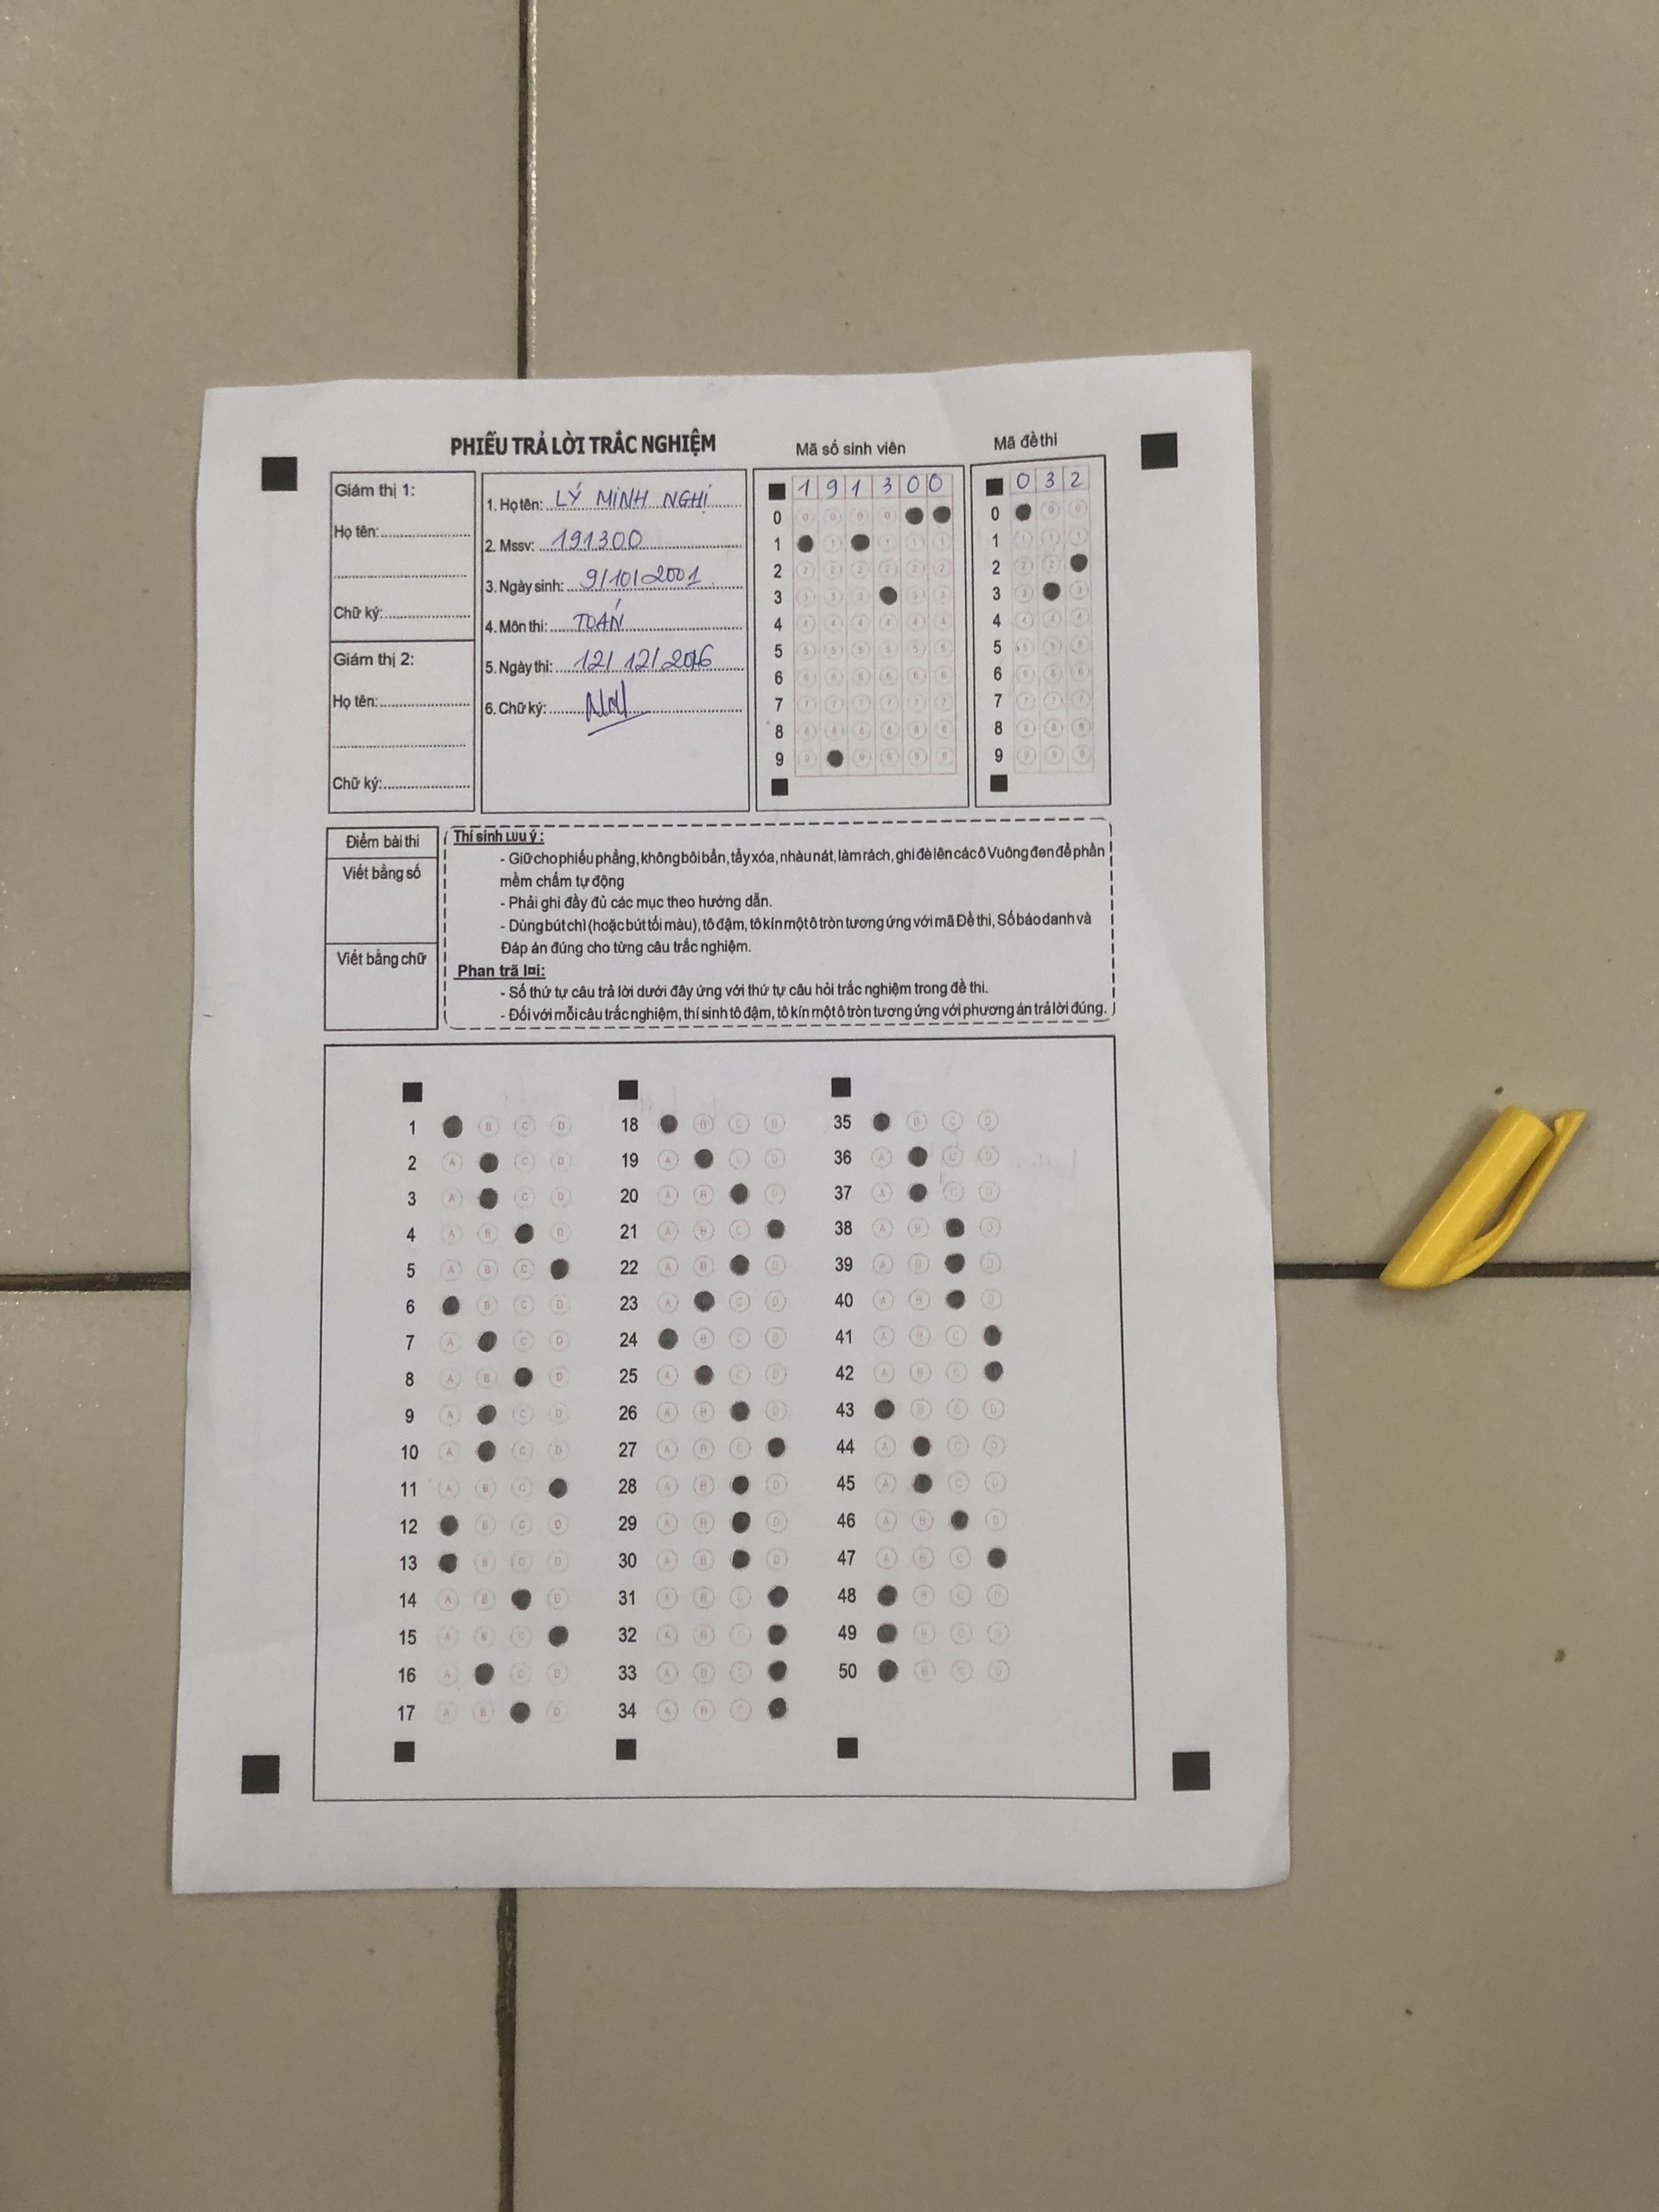 PHIẾU TRẢ LỜI TRẮC NGHIỆM
Giám thị 1:
Họ tên:
Chữ ký:
Giám thị 2:
Họ tên:
Chữ ký:
1. Họ tên: LÝ MINH NGHị
2. Mssv: 191300
3. Ngày sinh: 9/10/2001
4. Môn thi: TOÁN
5. Ngày thi: 12/12/2016
6. Chữ ký:
Mã số sinh viên
1 9 1 3 0 0
0
1
2
3
4
5
6
7
8
9
Mã đề thi
0 3 2
0
1
2
3
4
5
6
7
8
9
Điểm bài thi
Viết bằng số
Viết bằng chữ
Thí sinh Lưu ý:
- Giữ cho phiếu phẳng, không bôi bẩn, tẩy xóa, nhàu nát, làm rách, ghi đè lên các ô Vuông đen để phần
mềm chấm tự động
- Phải ghi đầy đủ các mục theo hướng dẫn.
- Dùng bút chì (hoặc bút tối màu), tô đậm, tô kín một ô tròn tương ứng với mã Đề thi, Số báo danh và
Đáp án đúng cho từng câu trắc nghiệm.
Phan trã lơi:
- Số thứ tự câu trả lời dưới đây ứng với thứ tự câu hỏi trắc nghiệm trong đề thi.
- Đối với mỗi câu trắc nghiệm, thí sinh tô đậm, tô kín một ô tròn tương ứng với phương án trả lời đúng.
1 B C D
2 A C D
3 A C D
4 A B D
5 A B C
6 B C D
7 A C D
8 A B D
9 A C D
10 A C D
11 A B C
12 B C D
13 B C D
14 A B D
15 A B C
16 A C D
17 A B D
18 B C D
19 A C D
20 A B D
21 A B C
22 A B D
23 A C D
24 B C D
25 A C D
26 A B D
27 A B C
28 A B D
29 A B D
30 A B D
31 A B C
32 A B C
33 A B C
34 A B C
35 B C D
36 A C D
37 A C D
38 A B D
39 A B D
40 A B D
41 A B C
42 A B C
43 B C D
44 A C D
45 A C D
46 A B D
47 A B C
48 B C D
49 B C D
50 B C D